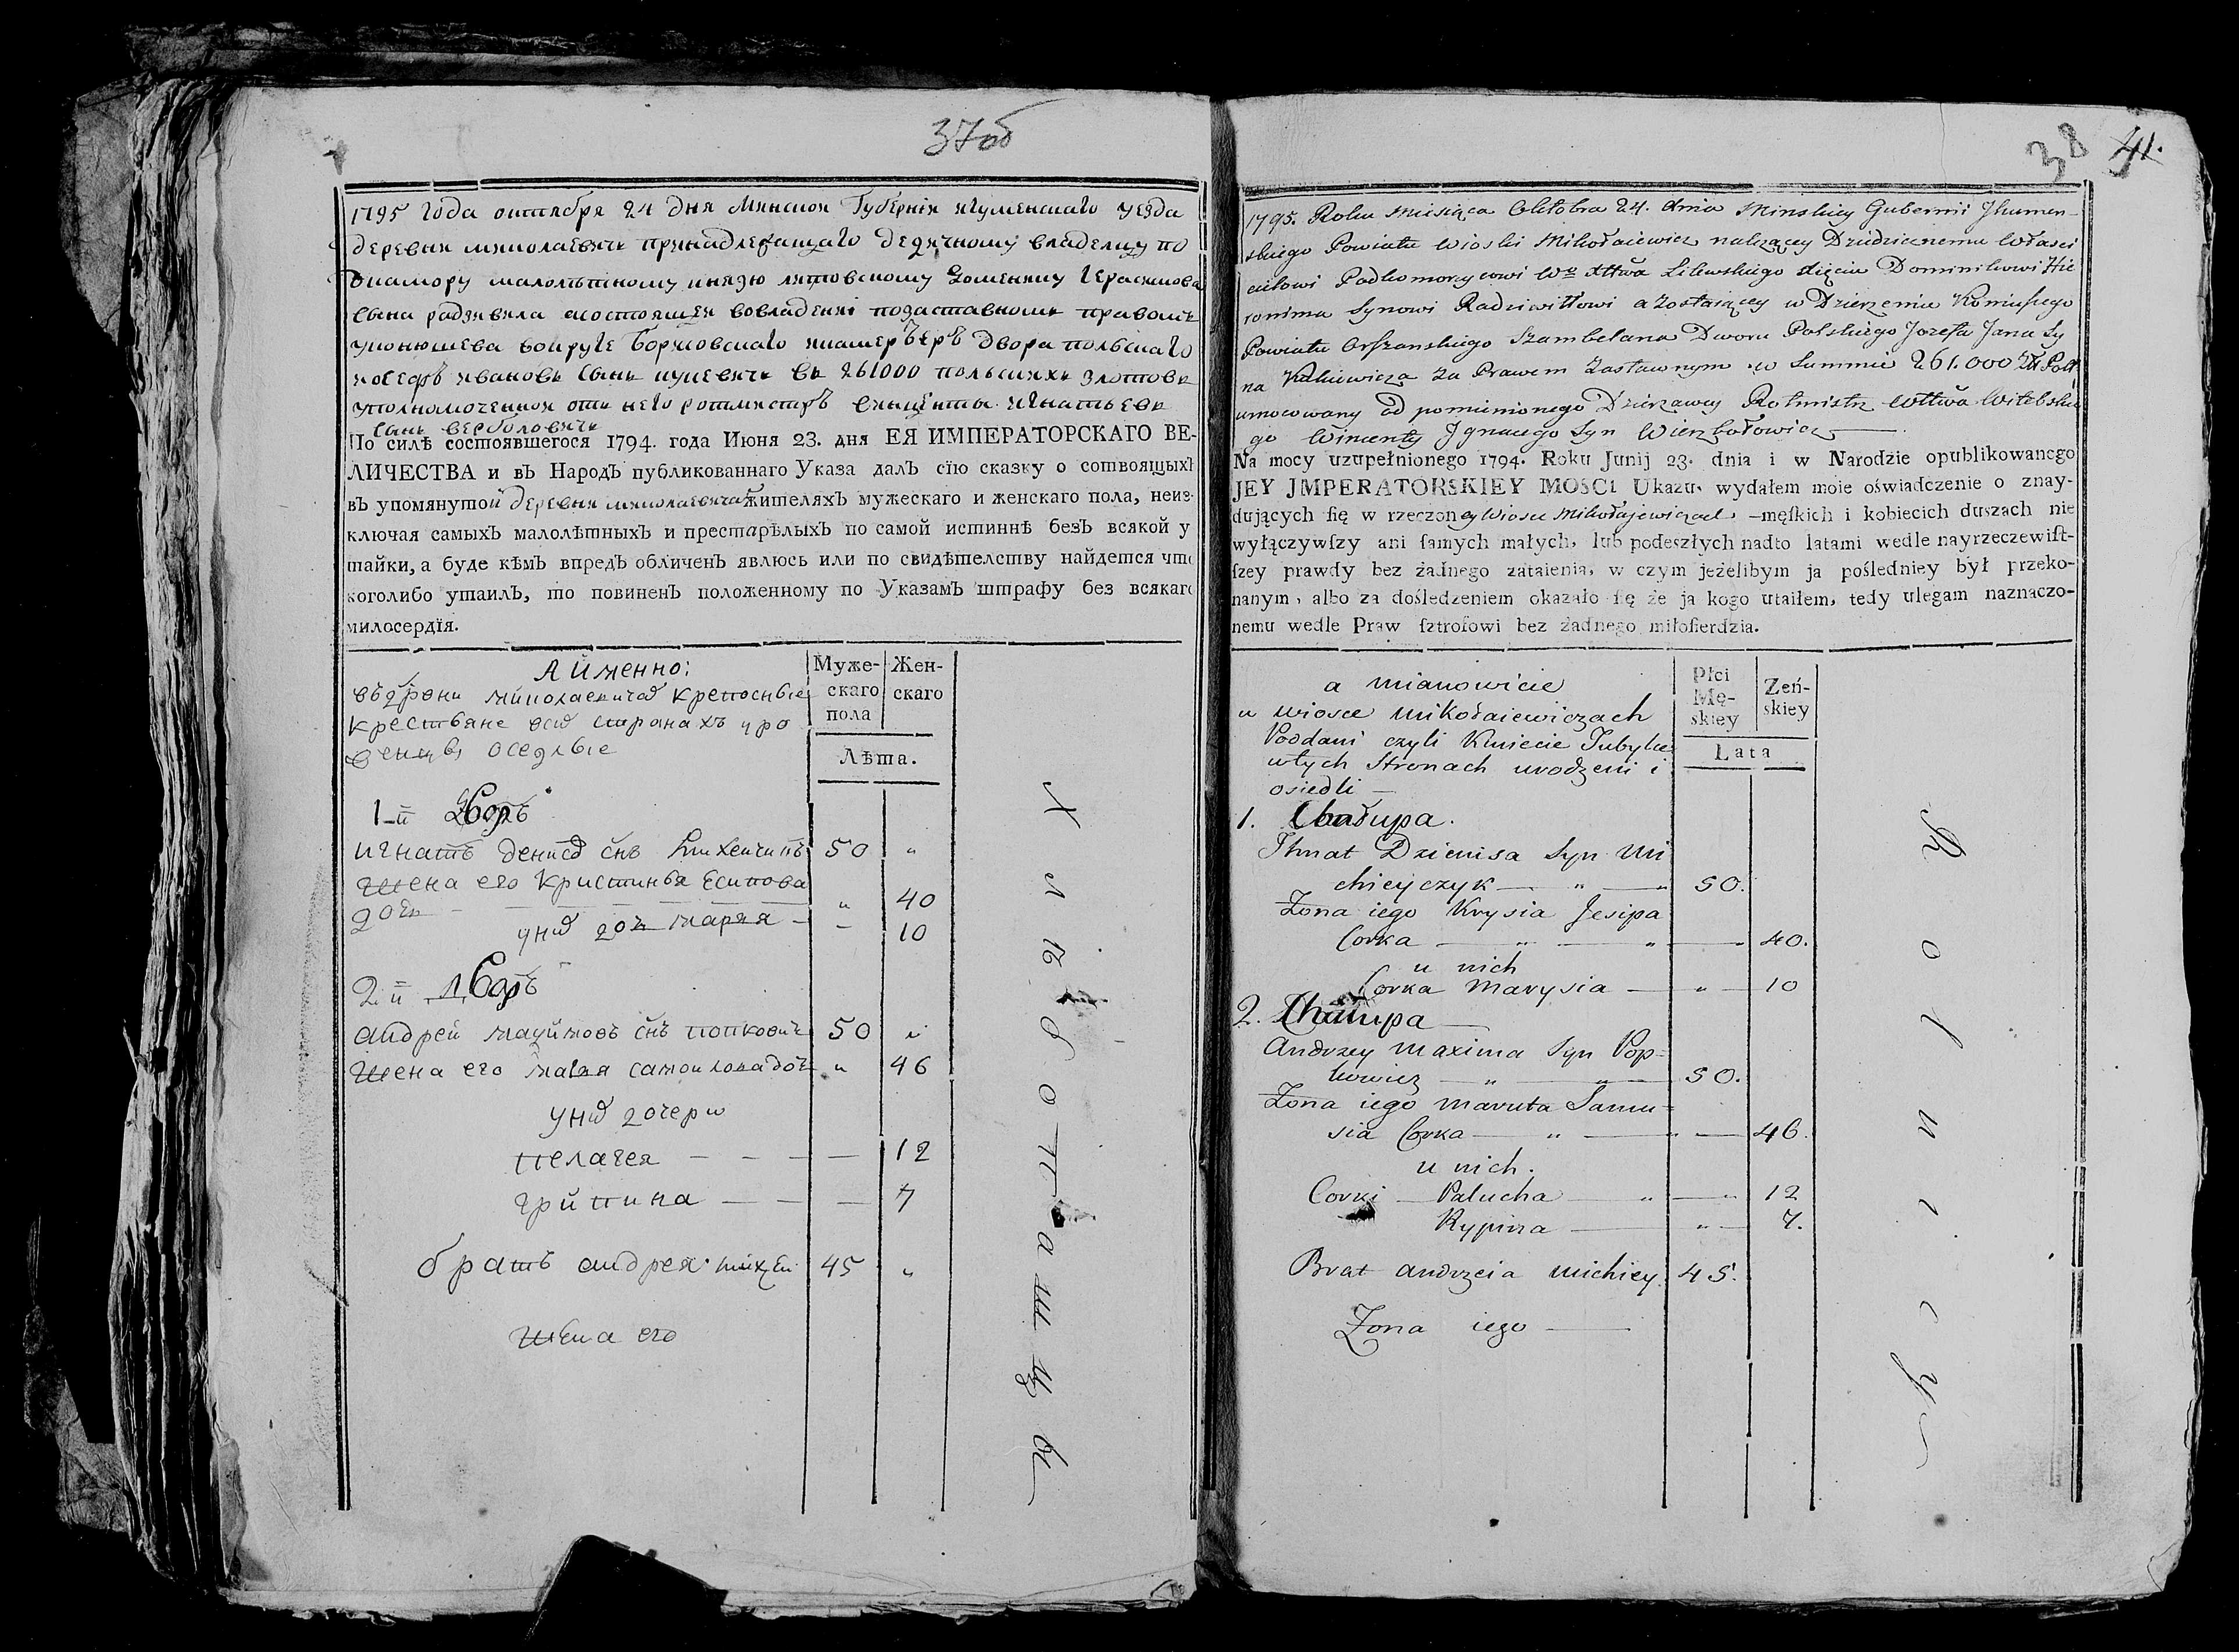 37об
1795 года октября 24 дня Минской Губерніи игуменскаго уезда
деревни миколаевичь принадлежащаго дедичному владелцу по
ᲂкамору малолѣтному князю литовскому Доменику Герасимова
сына радзивила асостоящей вовладеніи позаставному правомъ
вокруге двора польскаго
иосефъ ивановъ сынъ въ 261000 польскихъ злотовъ
уполномоченной отъ него ротмистръ викценты игнатьевъ
сынъ верболовичъ
По силѣ состоявшегося 1794. года Июня 23. дня ЕЯ ИМПЕРАТОРСКАГО ВЕ-
ЛИЧЕСТВА и въ Народъ публикованнаго Указа далъ сїю сказку о сотвоящыхъ
въ упомянутой деревни миколаевичахъ жителяхъ мужескаго и женскаго пола, неиз-
ключая самыхъ малолѣтныхъ и престарѣлыхъ по самой истиннѣ безъ всякой у
тайки, а буде кѣмъ впредъ обличенъ явлюсь или по свидѣтелству найдется что
коголибо утаилъ, то повиненъ положенному по Указамъ штрафу без всякаго
милосердїя.
Айменно:
Муже-
скаго
пола
Жен-
скаго
Лѣта.
миколаевичахъ крепосные
крестьяне странахъ уро
оседлые
1-й Дворъ
игнатъ денисов снъ михейчикъ 50 "
жена его кристинья есипова
дочь " 40
уних дочь маряя - - 10
2-й Дворъ
андрей маѯимовъ снъ попковичъ 50 "
жена его самоилова дочь " 46
уних дочери
пелагея - - - - 12
грипина - - - 7
братъ андрея михей 45 "
жена его
Хлѣбопашцы
38 41.
1795. Roku miesiąca Oktobra 24. dnia Minskiey Gubernii Jhumen-
skiego Powiatu Wioski Mikołaiewicz należącey Dziedzicznemu Własci
cielowi Podkomorzycowi Wo Xttwa Litewskiego Xięciu Dominikowi Hie
ronima Synowi Radziwiłłowi a zostaiącey w Dzierzeniu
Powiatu Orszanskiego Szambelana Dworu Polskiego Jozefa Jana Sy
na Kukiewicza za Prawem Zastawnym w Summie 261.000 Zł Pols
umocowany od pomienionego Dzierzawcy Rotmistrz Wttwa Witebskie
go Wincenty Jgnacego Syn Wierzbołowicz
Na mocy uzupełnionego 1794. Roku Junij 23. dnia i w Narodzie opublikowanego
JEY JMPERATORSKIEY MOSCI Ukazu, wydałem moie oświadczenie o znay-
dujących się w rzeczoney Wiosce Mikołajewiczach -męſkich i kobiecich duszach nie
wyłączywſzy ani ſamych małych, lub podeszłych nadto latami wedle nayrzeczewiſt-
ſzey prawdy bez żadnego zataienia, w czym jeżelibym ja poſledniey był przeko-
nanym, albo za doſledzeniem okazało ſię że ja kogo utaiłem, tedy ulegam naznaczo-
nemu wedle Praw ſztrofowi bez żadnego miłoſierdzia.
a mianowicie
Płci
Mę-
skiey
Zeń-
skiey
Lata
w wiosce Mikołaiewiczach
Poddani czyli Kmiecie Tubylce
wtych Stronach urodzeni i
osiedli
1. Chałupa.
Ihnat Dzienisa Syn Mi
chieyczyk 50.
Żona iego Krysia Jesipa
Corka 40.
u nich
Corka Marysia " 10
2. Chałupa
Andrzey Maxima Syn Pop=
kowicz 50.
Żona iego Maruta Samu=
sia Corka 46.
u nich.
Corki Palucha " 12
Rypina " 7.
Brat Andrzeia Michiey. 45.
Żona iego
Rolnicy